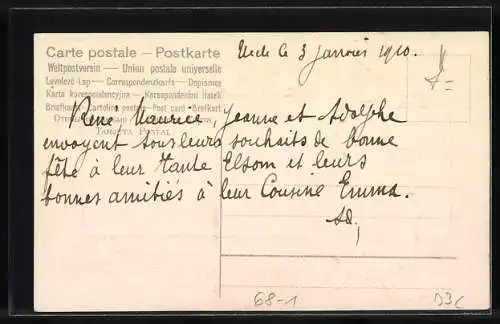 Carte postale – Postkarte
Weltpostverein — Union postale universelle
Levelező-Lap — Correspondenzkarte — Dopisnice
Karta korespondencyjna — Korespondenční lístek
Briefkaart — Cartolina postale — Post card — Brefkort
TARJETA POSTAL
Uccle le 3 janvier 1910.
René Maurice, Jeanne et Adolphe
envoyent tous leurs souhaits de bonne
fête à leur Tante Elsom et leurs
bonnes amitiés à leur Cousine Emma.
Ad,
68-1
D3c